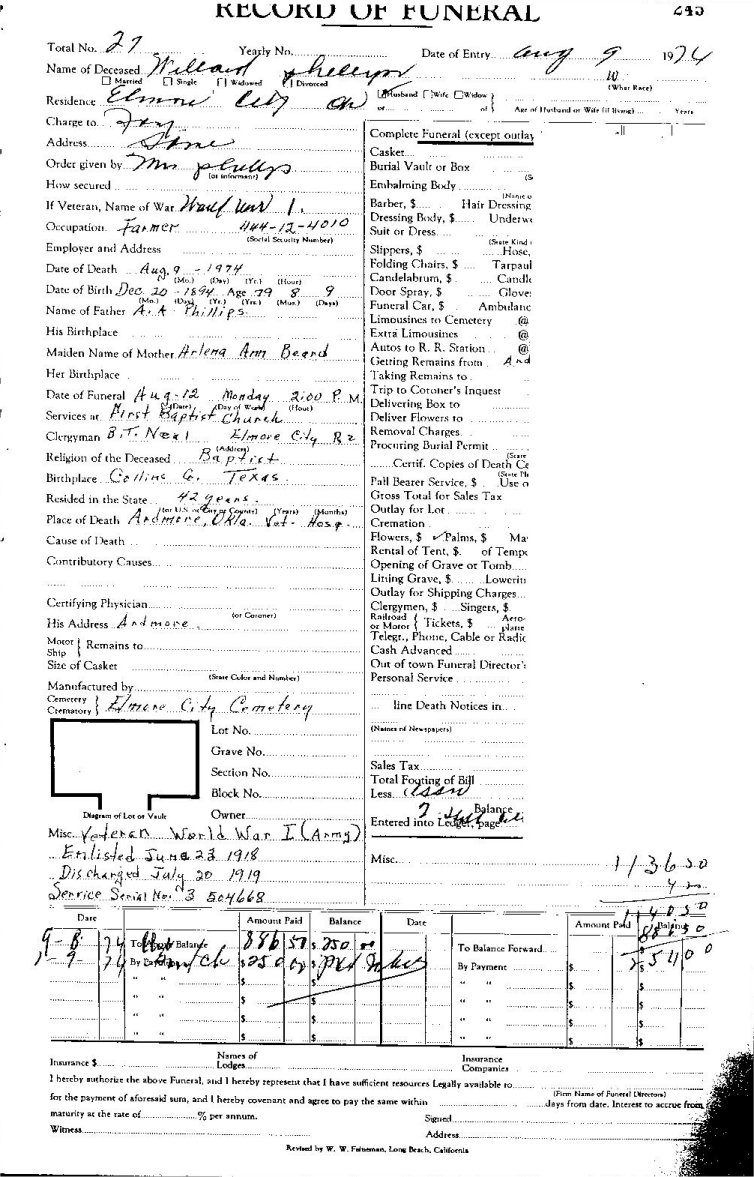 RECORD OF FUNERAL 245
Total No. 27 Yearly No. Date of Entry Aug 9 1974
Name of Deceased Willard Phillips W
Married Single Widowed Divorced (What Race)
Residence Elmore City Ok Husband Wife Widow or of Age of Husband or Wife (if living) Years
Charge to
Address Same
Order given by Mrs Phillips
(or informant)
How secured
If Veteran, Name of War World War I.
Occupation Farmer 444-12-4010
(Social Security Number)
Employer and Address
Date of Death Aug. 9 - 1974
(Mo.) (Day) (Yr.) (Hour)
Date of Birth Dec. 20 - 1894 Age 79 8 9
(Mo.) (Day) (Yr.) (Yrs.) (Mos.) (Days)
Name of Father A.A. Phillips
His Birthplace
Maiden Name of Mother Arlena Ann Beard
Her Birthplace
Date of Funeral Aug-12 Monday 2:00 P. M.
(Date) (Day of Week) (Hour)
Services at First Baptist Church
Clergyman B.T. Neal Elmore City R2
(Address)
Religion of the Deceased Baptist
Birthplace Collins Co. Texas.
Resided in the State 42 years.
(or U.S. or City or County) (Years) (Months)
Place of Death Ardmore, Okla. Vet. Hosp.
Cause of Death
Contributory Causes
Certifying Physician
(or Coroner)
His Address Ardmore.
Motor Ship Remains to
Size of Casket
(State Color and Number)
Manufactured by
Cemetery Crematory Elmore City Cemetery
Lot No.
Grave No.
Section No.
Block No.
Diagram of Lot or Vault Owner
Misc. Veteran World War I (Army)
Enlisted June 23 1918
Discharged July 20 1919
Service Serial No. 3 504668
Complete Funeral (except outlay
Casket
Burial Vault or Box
(S
Embalming Body
(Name o
Barber, $ Hair Dressing
Dressing Body, $ Underwe
Suit or Dress
(State Kind
Slippers, $ Hose,
Folding Chairs, $ Tarpaul
Candelabrum, $ Candle
Door Spray, $ Gloves
Funeral Car, $ Ambulanc
Limousines to Cemetery @
Extra Limousines @
Autos to R. R. Station @
Getting Remains from And
Taking Remains to
Trip to Coroner's Inquest
Delivering Box to
Deliver Flowers to
Removal Charges
Procuring Burial Permit
(State
Certif. Copies of Death Ce
(State Pla
Pall Bearer Service, $ Use o
Gross Total for Sales Tax
Outlay for Lot
Cremation
Flowers, $ Palms, $ Ma
Rental of Tent, $ of Tempo
Opening of Grave or Tomb
Lining Grave, $ Lowerin
Outlay for Shipping Charges
Clergymen, $ Singers, $
Railroad or Motor Tickets, $ Aero-plane
Telegr., Phone, Cable or Radio
Cash Advanced
Out of town Funeral Director's
Personal Service
line Death Notices in
(Names of Newspapers)
Sales Tax
Total Footing of Bill
Less
Balance
Entered into Ledger, page
Misc. 1136 50
4 00
1140 50
Date Amount Paid Balance Date Amount Paid Balance
9-8 74 To Balance 886 50 $250 00 To Balance Forward 886 50
9 74 By Ck $250 00 By Payment $ $254 00
Insurance $ Names of Lodges Insurance Companies
I hereby authorize the above Funeral, and I hereby represent that I have sufficient resources Legally available to
(Firm Name of Funeral Directors)
for the payment of aforesaid sum, and I hereby covenant and agree to pay the same within days from date. Interest to accrue from
maturity at the rate of % per annum. Signed
Witness Address
Revised by W. W. Feineman, Long Beach, California